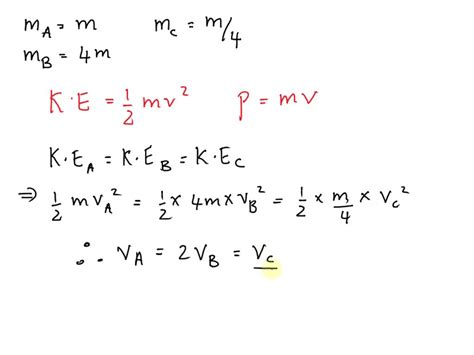 m_A = m m_C = m/4
m_B = 4m
K·E = 1/2 mv² p = mv
K·E_A = K·E_B = K·E_C
⇒ 1/2 m v_A² = 1/2 × 4m × v_B² = 1/2 × m/4 × v_C²
∴ v_A = 2v_B = v_C